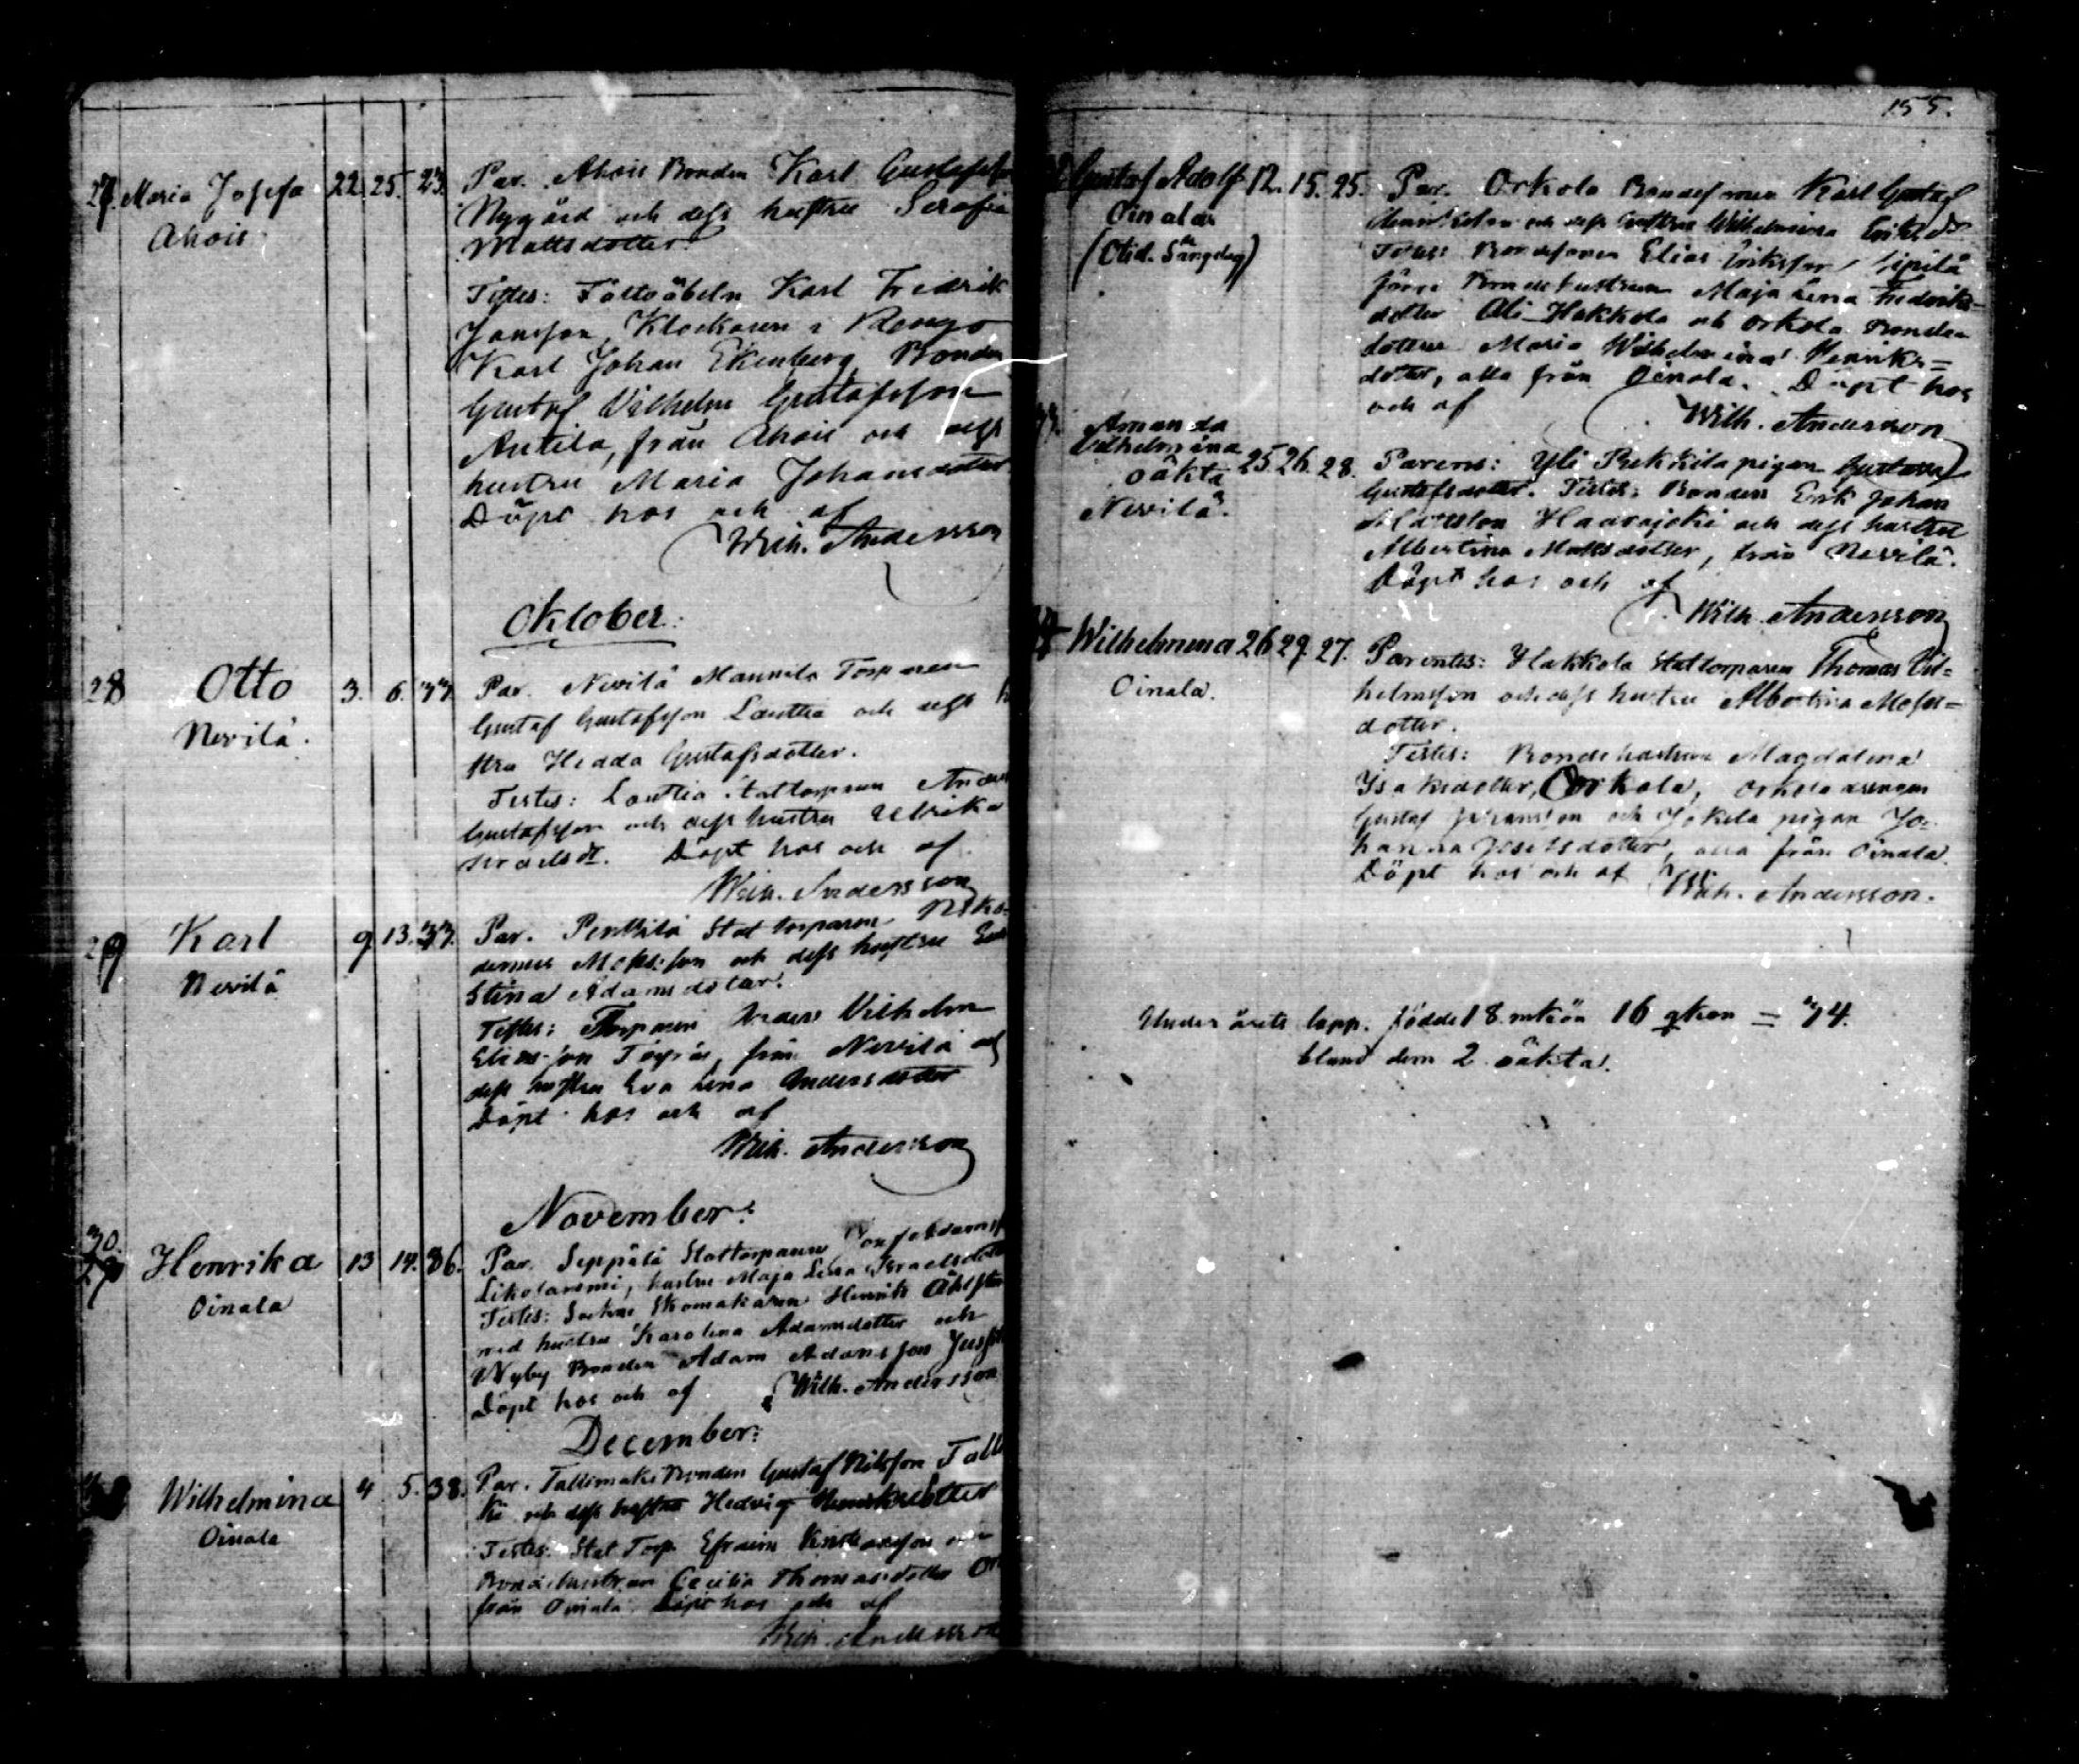 27. Maria Josefa 22. 25. 23. Par. Ahois Bonden Karl Gustafsson
Ahois. Nygård och dess hustru Serafia
Mattsdotter.
Testes: Karl Fredrik
Jansson, Klockaren i Rengo
Karl Johan Ekenberg, Bonden
Gustaf Vilhelm Gustafsson
Antila, från Ahois och dess
hustru Maria Johansdotter
Döpt hos och af
Wilh. Andersson
Oktober.
28 Otto 3. 6. 33. Par. Nevilä Mannila Torparen
Nevilä. Gustaf Gustafsson Lauttia och dess h
stru Hedda Gustafsdotter.
Testes: Lauttia Stattorparen Anders
Gustafsson och dess hustru Ulrika
Döpt hos och af
Wilh. Andersson
29 Karl 9 13. 33. Par. Penttilä Stattorparen Niko=
Nevilä demus och dess hustru
Stina Adamsdotter.
Testes: Torparen Anders Vilhelm
från Nevilä och
dess hustru Eva Lena Andersdotter
Döpt hos och af
Wilh. Andersson
November.
30. Henrika 13 14. 36. Par. Seppälä Stattorparen
Oinala hustru Maja Lena Israelsdotter
Testes: Sockne Skomakaren Henrik
med hustru Karolina Adamsdotter och
Nyby Bonden Adam Adamsson
Döpt hos och af Wilh. Andersson
December.
Wilhelmina 4. 5. 38. Par. Tallimäki Bonden Gustaf Nilsson
Oinala och dess hustru Hedvig
Testes: Stat Torp. Efraim och
Bondehustrun Cecilia Thomasdotter
från Oinala. Döpt hos och af
Wilh. Andersson
155.
Gustaf Adolf 12. 15. 25. Par. Orkola Bondesonen Karl Gustaf
Oinala och dess hustru Wilhelmina
Testes: Bondesonen Elias Eriksson
Bondehustrun Maja Lena Fredriks=
dotter Ali Hakkola och Orkola Bonde
dottern Maria Wilhelmina Henriks=
dotter, alla från Oinala. Döpt hos
och af Wilh. Andersson
Amanda
Vilhelmina
oäkta 25 26. 28. Parens: Yli Penttilä pigan Gustava
Nevilä. Gustafsdotter. Testes: Bonden Erik Johan
Haarajoki och dess hustru
Albertina Mattsdotter, från Nevilä.
Döpt hos och af
Wilh. Andersson
Wilhelmina 26 29. 27. Parentes: Hakkola Stattorparen Thomas Vil=
Oinala. helmsson och dess hustru Albertina Moses=
dotter.
Testes: Bondehustrun Magdalena
Isaksdotter, Orkola, Orkola drengen
Gustaf Johansson och Jokela pigan Jo=
hanna alla från Oinala.
Döpt hos och af Wilh. Andersson.
Under årets lopp. födde 18 mkön 16 qkön = 34.
bland dem 2 oäkta.